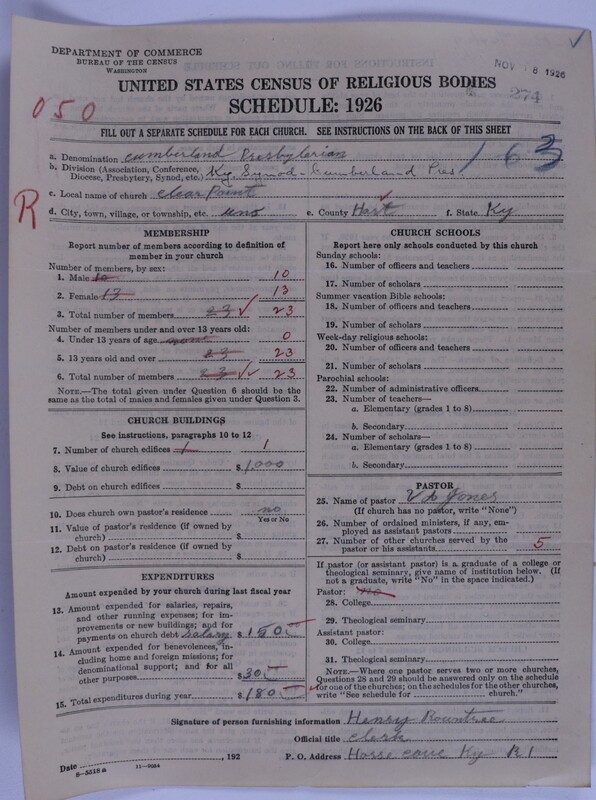 DEPARTMENT OF COMMERCE
BUREAU OF THE CENSUS
WASHINGTON
NOV 18 1926
274
UNITED STATES CENSUS OF RELIGIOUS BODIES
SCHEDULE: 1926
050
FILL OUT A SEPARATE SCHEDULE FOR EACH CHURCH. SEE INSTRUCTIONS ON THE BACK OF THIS SHEET
a. Denomination Cumberland Presbyterian
163
b. Division (Association, Conference, Diocese, Presbytery, Synod, etc.) Ky Synod - Cumberland Pres
c. Local name of church Clear Point
R
d. City, town, village, or township, etc. uno e. County Hart f. State Ky
MEMBERSHIP
Report number of members according to definition of
member in your church
Number of members, by sex:
1. Male 10 10
2. Female 13 13
3. Total number of members 23 23
Number of members under and over 13 years old:
4. Under 13 years of age none 0
5. 13 years old and over 23 23
6. Total number of members 23 23
NOTE.—The total given under Question 6 should be the
same as the total of males and females given under Question 3.
CHURCH BUILDINGS
See instructions, paragraphs 10 to 12
7. Number of church edifices 1 1
8. Value of church edifices $ 1,000
9. Debt on church edifices $
10. Does church own pastor's residence no
Yes or No
11. Value of pastor's residence (if owned by
church) $
12. Debt on pastor's residence (if owned by
church) $
EXPENDITURES
Amount expended by your church during last fiscal year
13. Amount expended for salaries, repairs,
and other running expenses; for im-
provements or new buildings; and for
payments on church debt Salary $ 150
14. Amount expended for benevolences, in-
cluding home and foreign missions; for
denominational support; and for all
other purposes $ 30
15. Total expenditures during year $ 180
CHURCH SCHOOLS
Report here only schools conducted by this church
Sunday schools:
16. Number of officers and teachers
17. Number of scholars
Summer vacation Bible schools:
18. Number of officers and teachers
19. Number of scholars
Week-day religious schools:
20. Number of officers and teachers
21. Number of scholars
Parochial schools:
22. Number of administrative officers
23. Number of teachers—
a. Elementary (grades 1 to 8)
b. Secondary
24. Number of scholars—
a. Elementary (grades 1 to 8)
b. Secondary
PASTOR
25. Name of pastor Jones
(If church has no pastor, write "None")
26. Number of ordained ministers, if any, em-
ployed as assistant pastors
27. Number of other churches served by the
pastor or his assistants 5
If pastor (or assistant pastor) is a graduate of a college or
theological seminary, give name of institution below. (If
not a graduate, write "No" in the space indicated.)
Pastor: no
28. College
29. Theological seminary
Assistant pastor:
30. College
31. Theological seminary
NOTE.—Where one pastor serves two or more churches,
Questions 28 and 29 should be answered only on the schedule
for one of the churches; on the schedules for the other churches,
write "See schedule for church."
Signature of person furnishing information Henry Rountree
Official title clerk
Date , 192 P. O. Address Horse cave Ky R1
8-5518a 11-9034